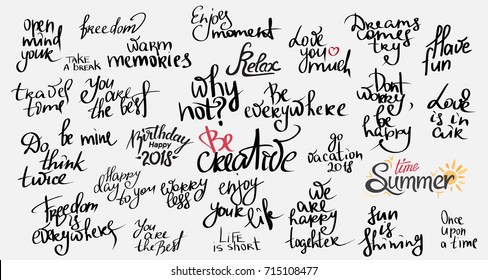 open
mind
your
freedom
TAKE
A BREAK
warm
memories
Enjoes
moment
Relax
Love
you
much
Dreams
comes
try
Have
fun
travel
time
You
are
the best
why
not?
Be
everywhere
Dont
worry
be
happy
Love
is in
air
Do
think
twice
be mine
Birthday
Happy
2018
Be
creative
go
vacation
2018
time
Summer
Happy
day
to you
worry
less
enjoy
your
life
we
are
happy
together
Freedom
is
everywhere
You
are
the Best
LIFE
is short
sun
is
shining
Once
upon
a time
shutterstock
IMAGE ID: 715108477
www.shutterstock.com